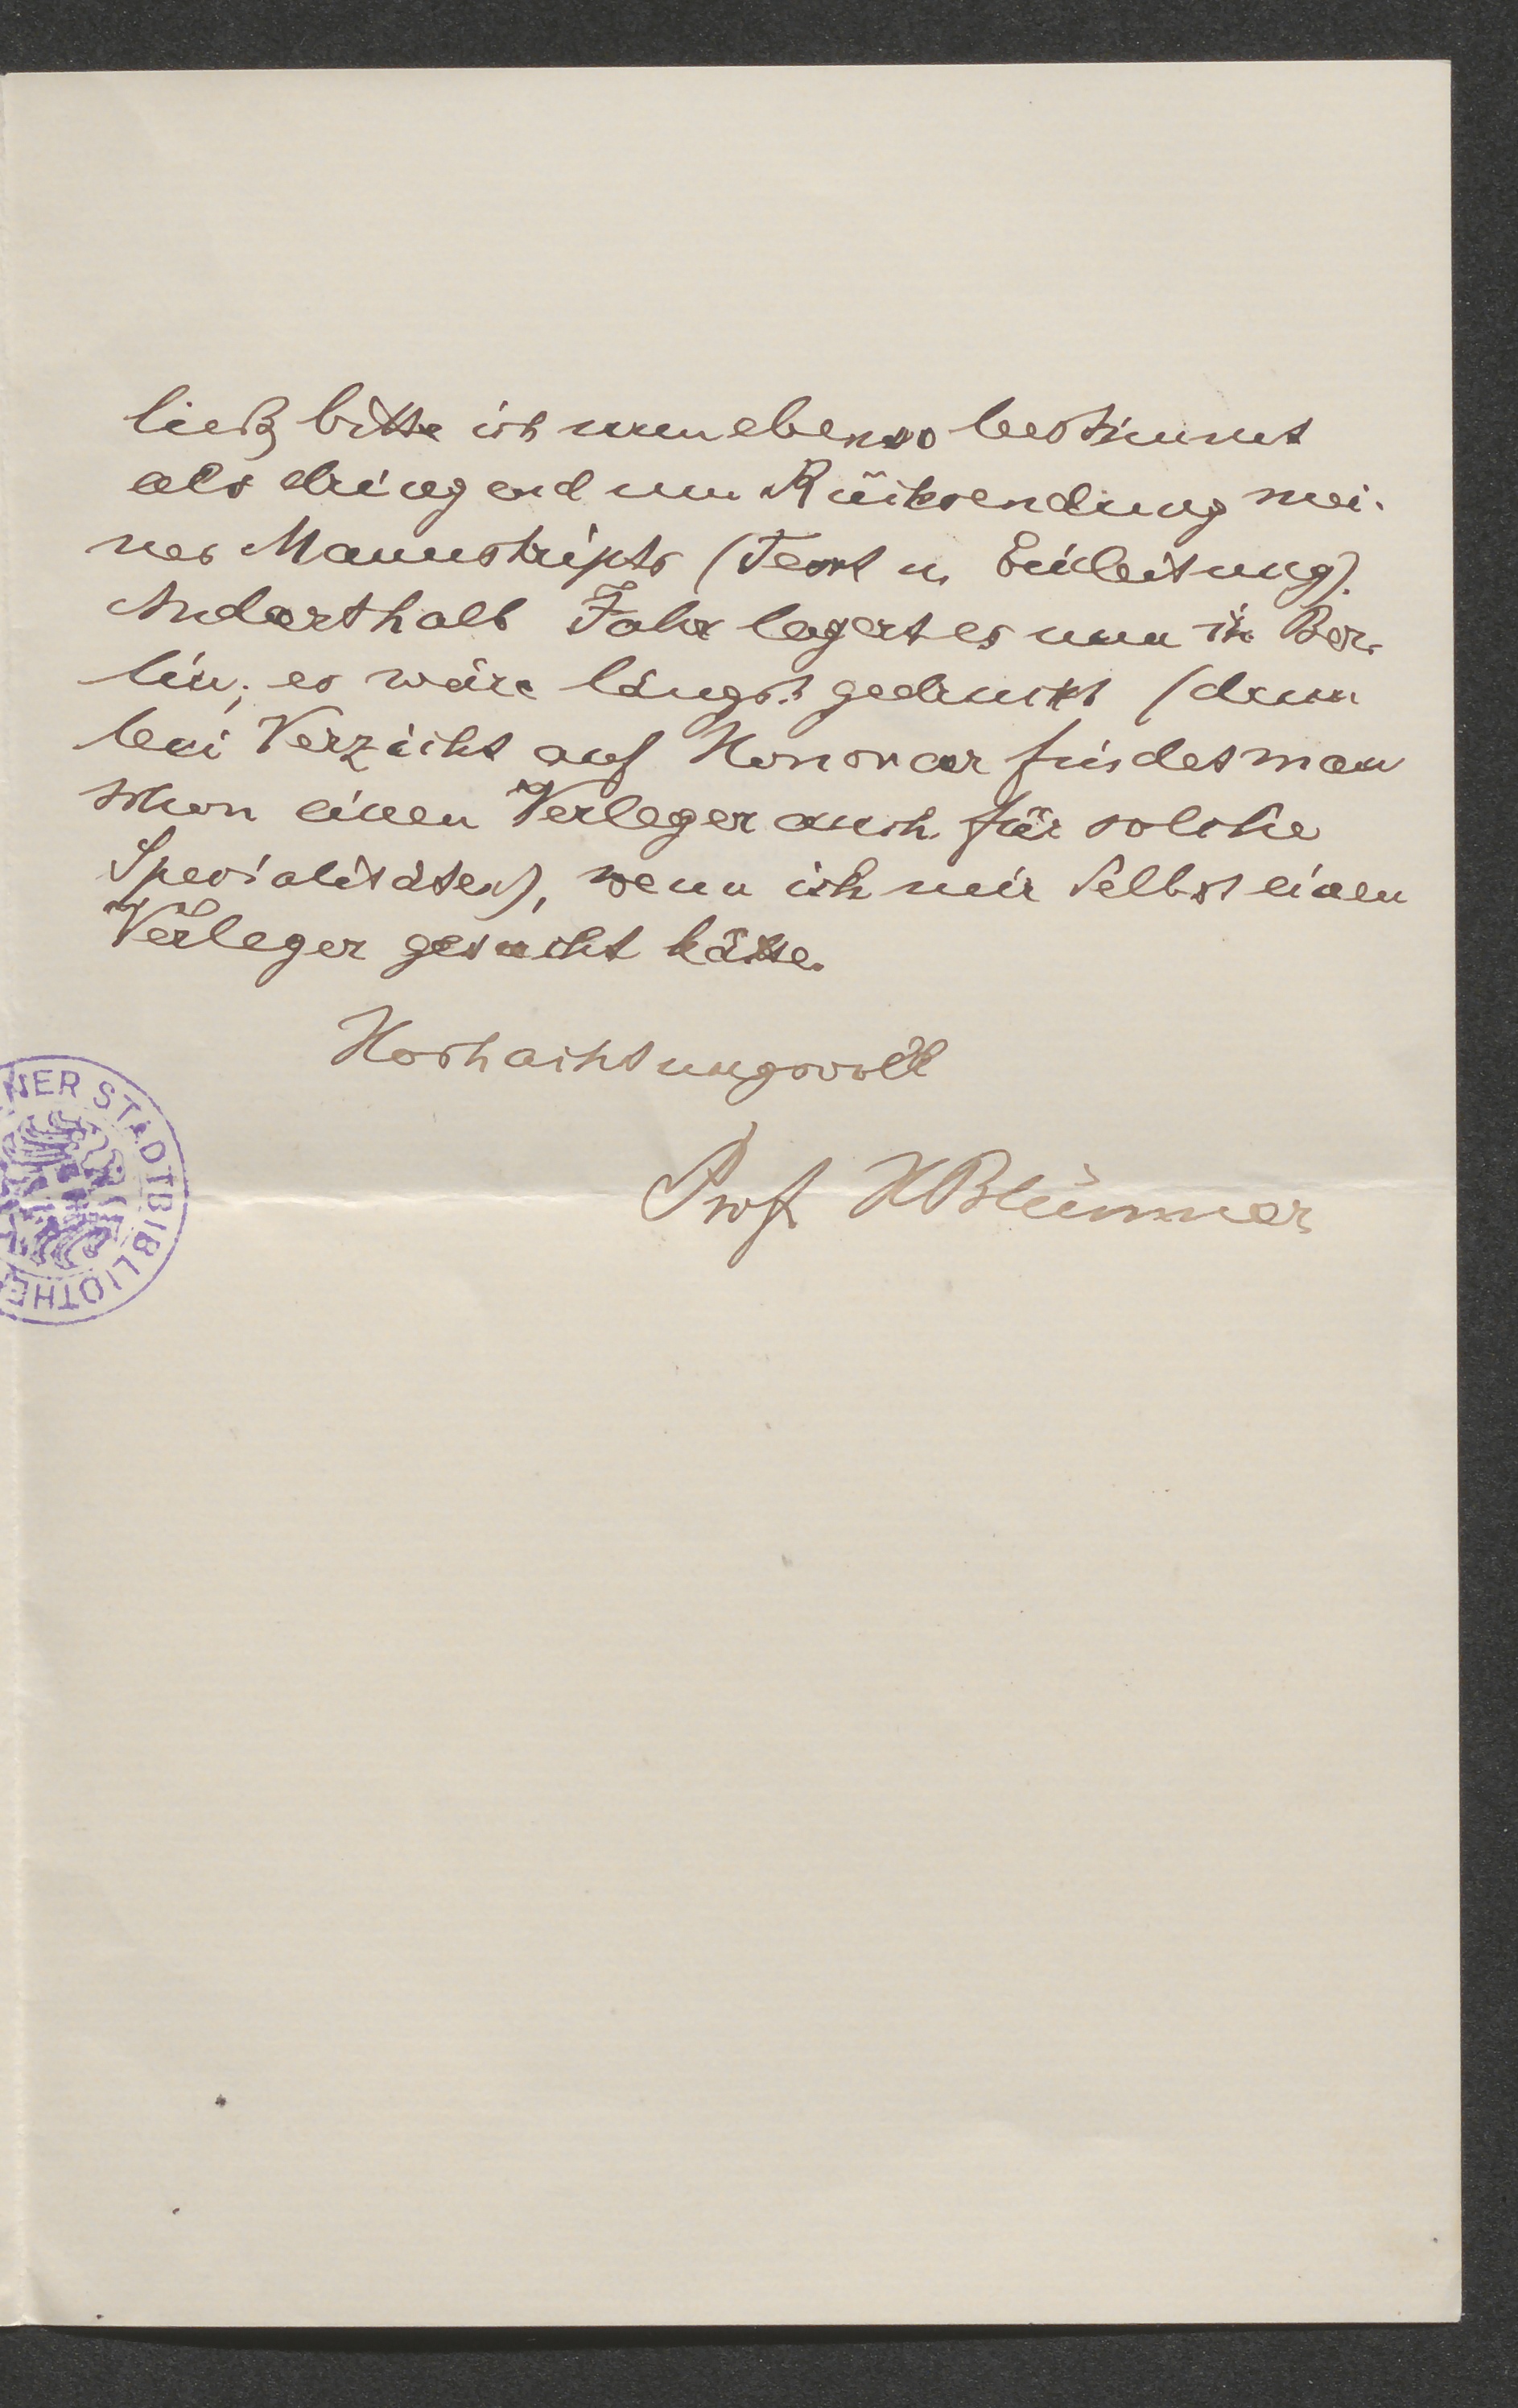 ließ bitte ich nun ebenso bestimmt
als dringend um Rücksendung mei-
nes Manuskripts (Text u. Einleitung).
Anderthalb Jahr lagert es nun in Ber-
lin; es wäre längst gedruckt (denn
bei Verzicht auf Honorar findet man
schon einen Verleger auch für solche
Specialitäten), wenn ich mir selbst einen
Verleger gesucht hätte.
Hochachtungsvoll
Prof HBlümner
NER STADTBIBLIOTHE